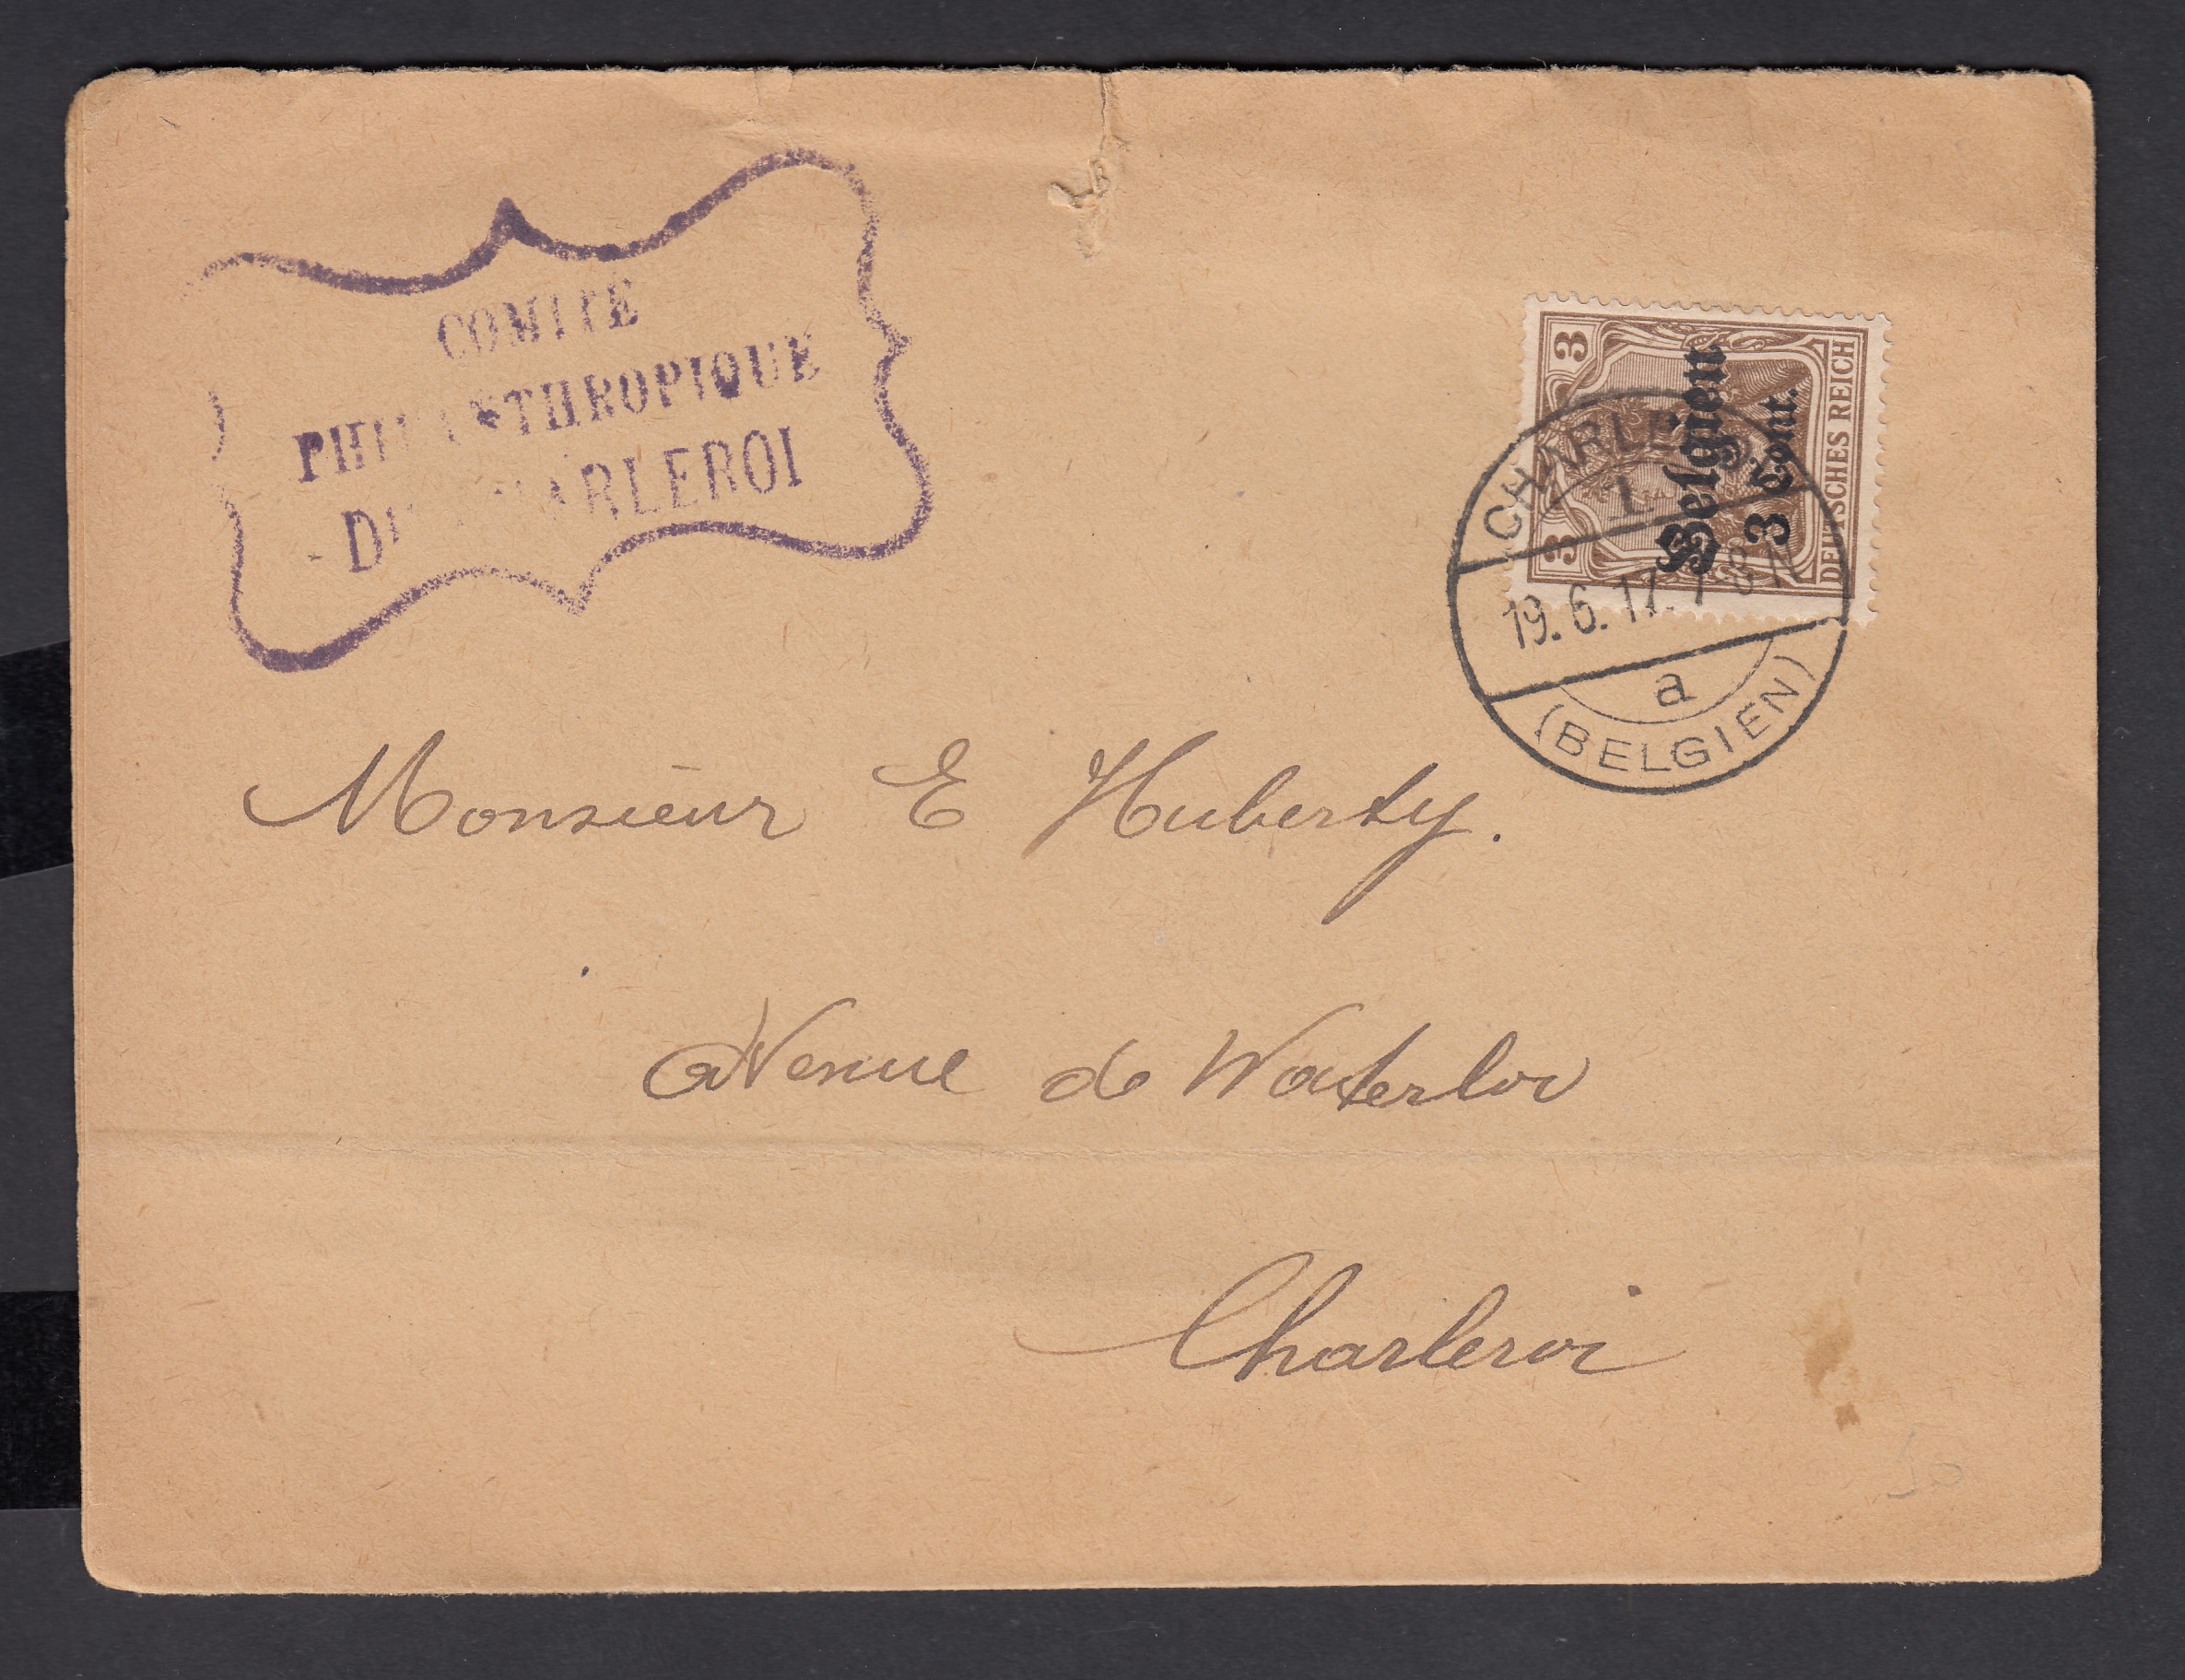 COMITE
PHILANTHROPIQUE
DE CHARLEROI
3
3
DEUTSCHES REICH
Belgien
3 Cent.
CHARLEROI
1
19.6.17. 7-8 N
a
(BELGIEN)
Monsieur E Huberty.
Avenue de Waterloo
Charleroi